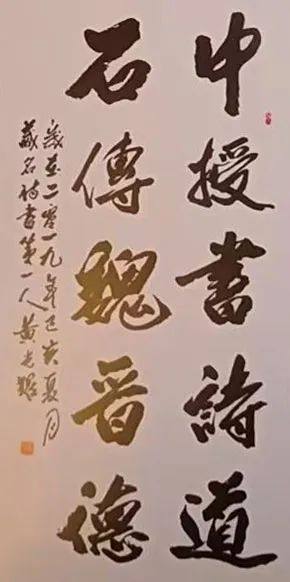 中授書詩道
石傳魏晉德
歲在二零一九年己亥夏月
藏名詩書第一人黄光